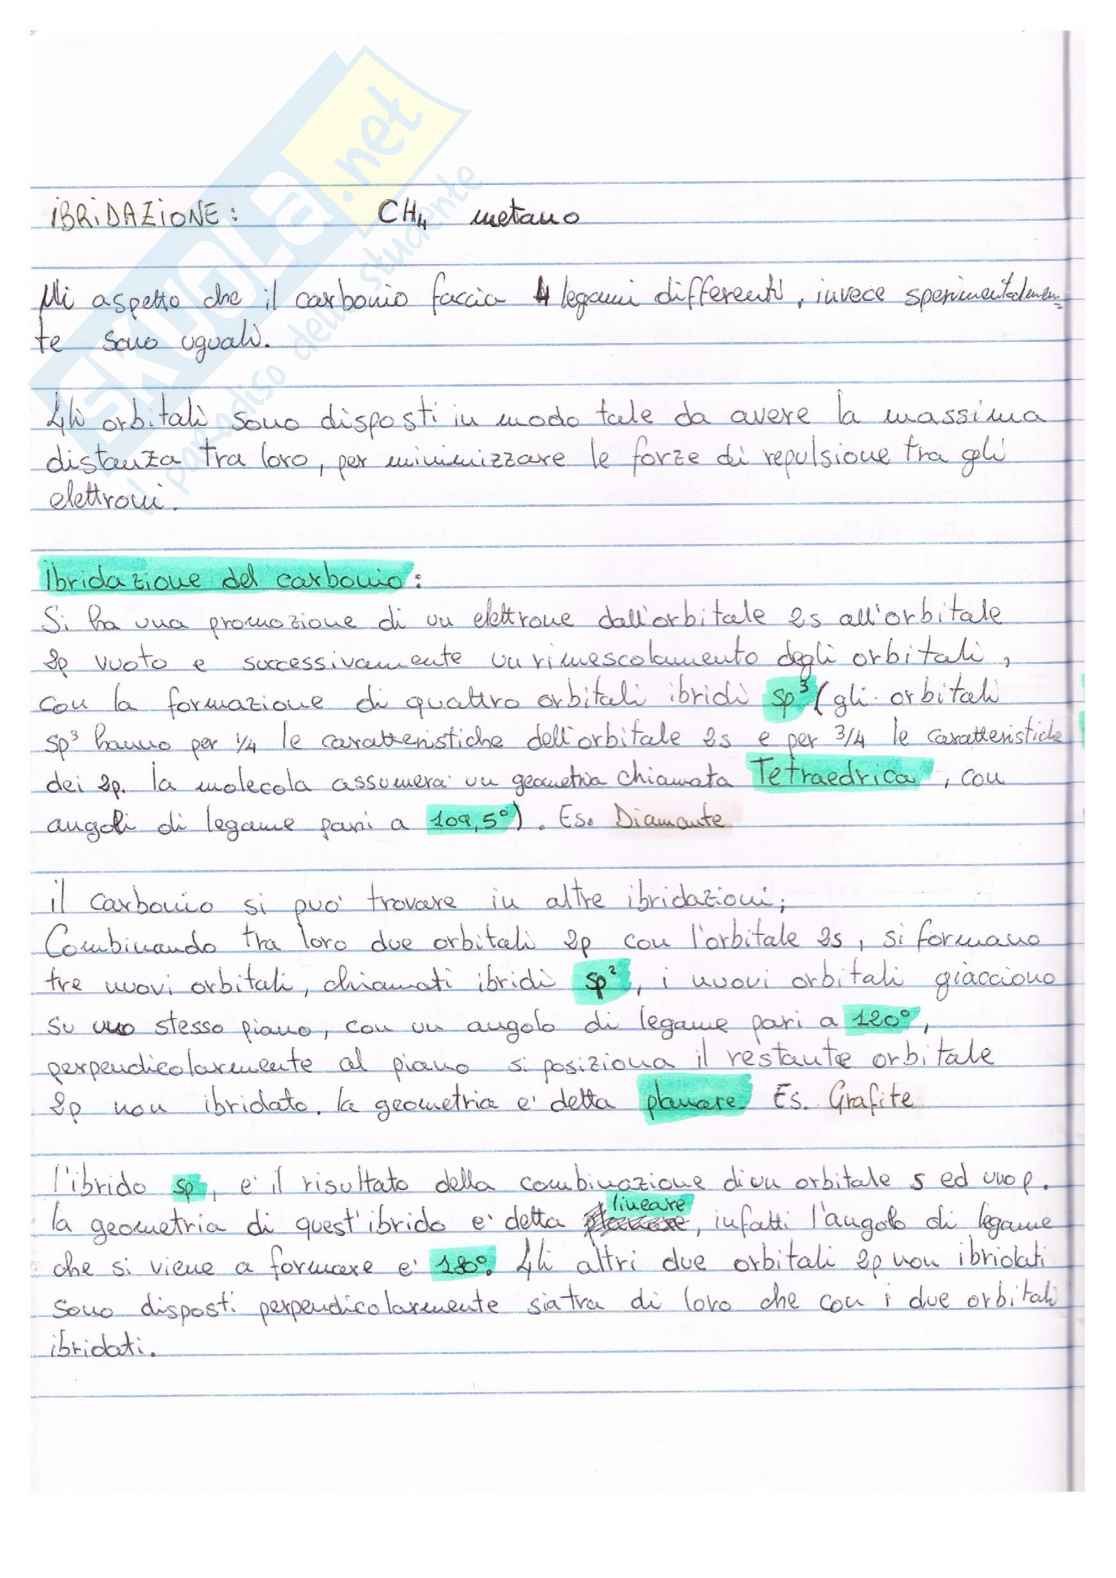 SKUOLA.net
il paradiso dello studente
IBRIDAZIONE: CH4 metano
Mi aspetto che il carbonio faccia 4 legami differenti, invece sperimentalmen-
te sono uguali.
Gli orbitali sono disposti in modo tale da avere la massima
distanza tra loro, per minimizzare le forze di repulsione tra gli
elettroni.
ibridazione del carbonio:
Si ha una promozione di un elettrone dall'orbitale 2s all'orbitale
2p vuoto e successivamente un rimescolamento degli orbitali,
con la formazione di quattro orbitali ibridi sp³ (gli orbitali
sp³ hanno per 1/4 le caratteristiche dell'orbitale 2s e per 3/4 le caratteristiche
dei 2p. la molecola assumera' un geometria chiamata Tetraedrica, con
angoli di legame pari a 109,5°). Es. Diamante
il carbonio si puo' trovare in altre ibridazioni;
Combinando tra loro due orbitali 2p con l'orbitale 2s, si formano
tre nuovi orbitali, chiamati ibridi sp², i nuovi orbitali giacciono
su uno stesso piano, con un angolo di legame pari a 120°,
perpendicolarmente al piano si posiziona il restante orbitale
2p non ibridato. la geometria e' detta planare. Es. Grafite
l'ibrido sp, e' il risultato della combinazione di un orbitale s ed uno p.
la geometria di quest'ibrido e' detta lineare, infatti l'angolo di legame
che si viene a formare e' 180°. Gli altri due orbitali 2p non ibridati
sono disposti perpendicolarmente sia tra di loro che con i due orbitali
ibridati.